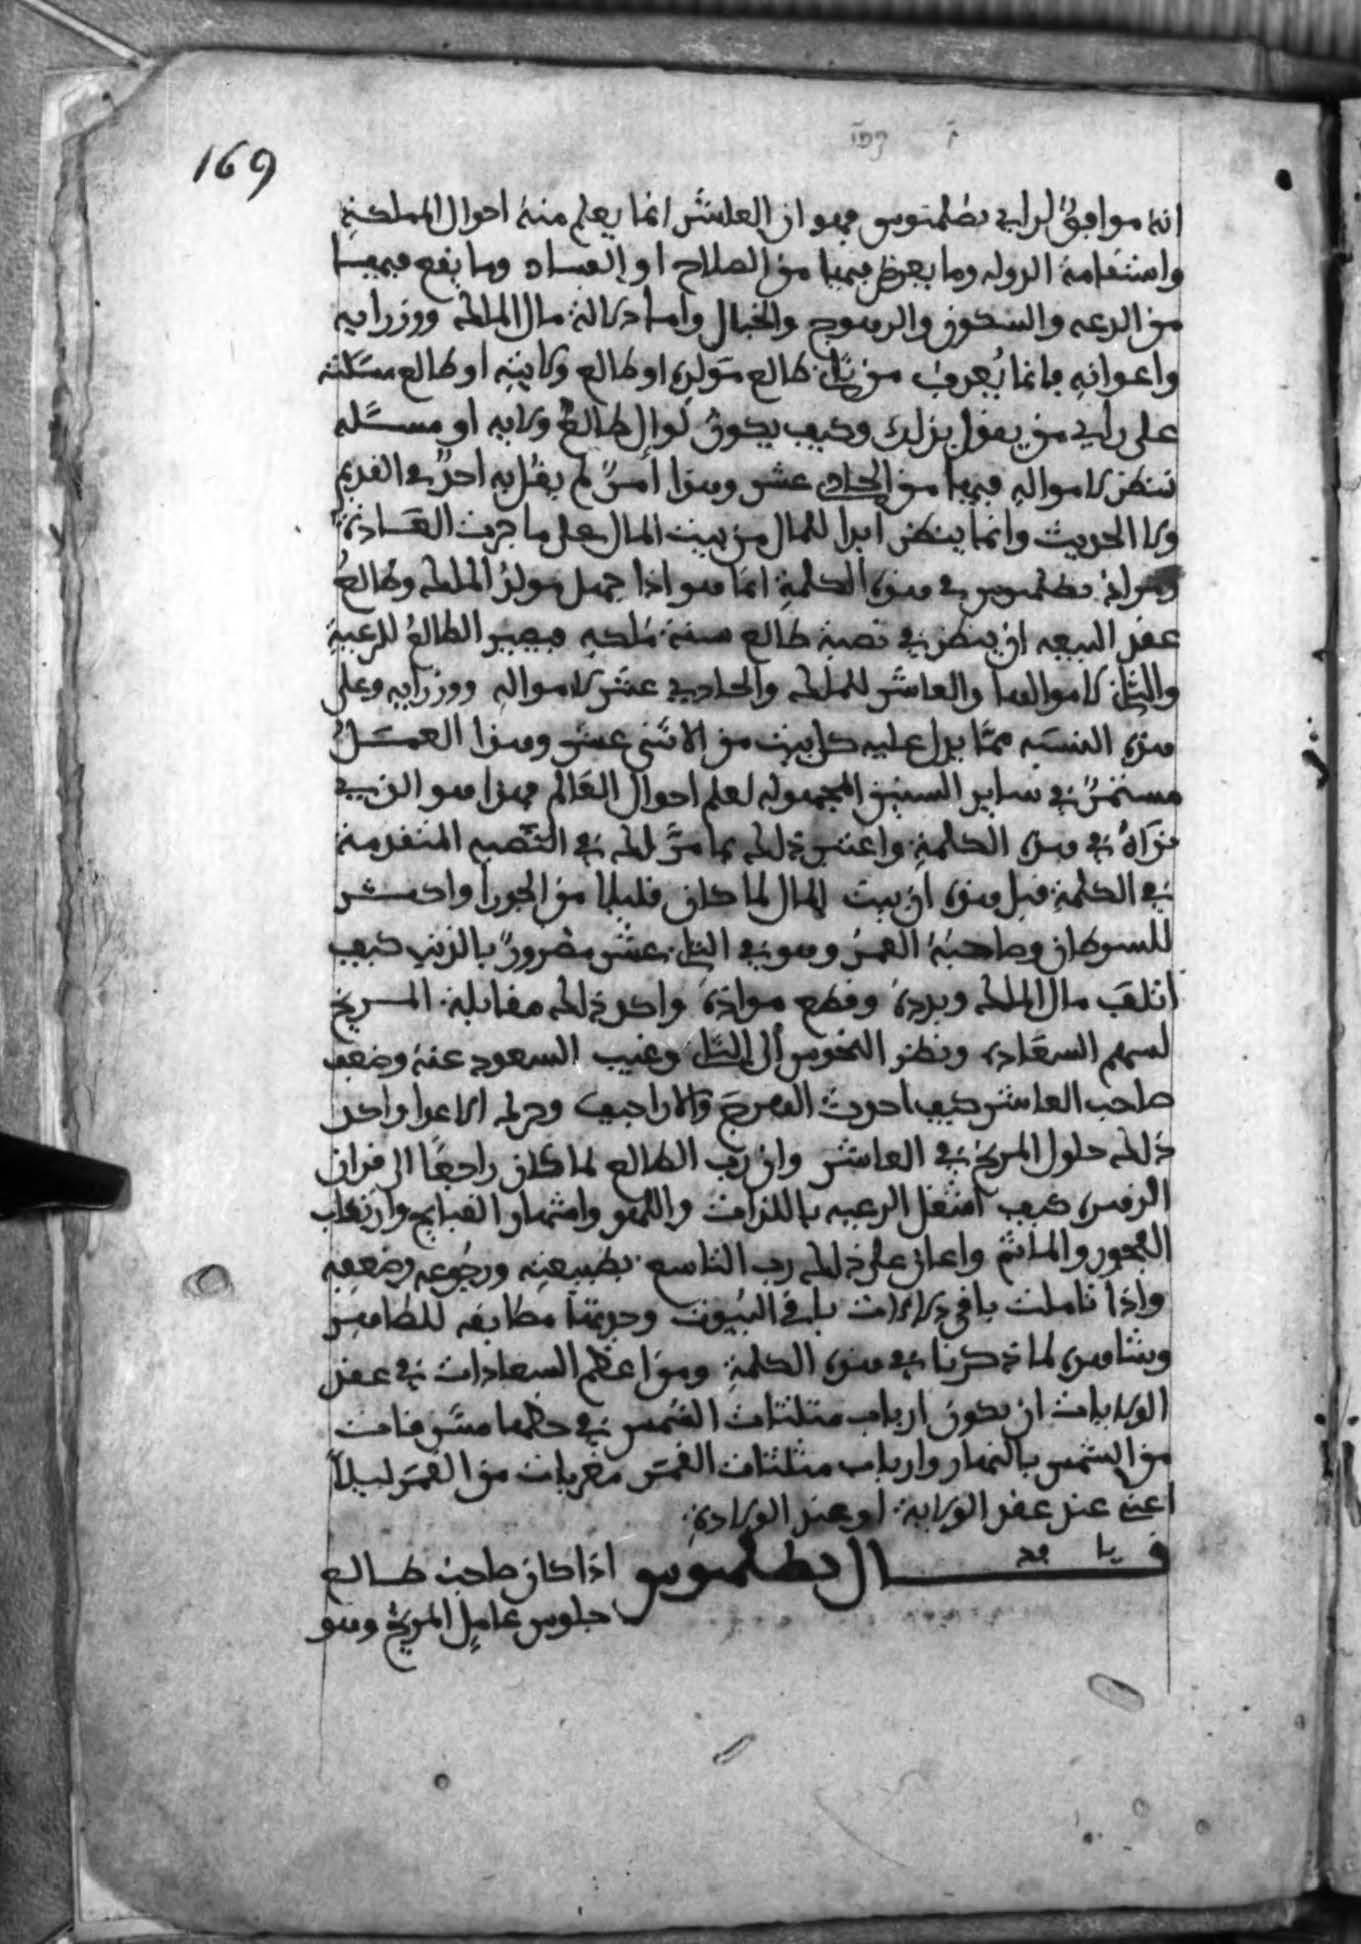 169
انه موافق لراي بطلميوس فهو ان العاشر انما يعلم منه احوال المملكة
واستقامة الدوله وما يعرض فيها من الصلاح او الفساد وما يقع فيها
من الدعه والسكون والهبوج والخبال واما دلالة مال الملك ووزرايه
واعوانه فانما يُعرف من ثاني طالع مولده او طالع ولايته او طالع مسئلته
على راي من يقول بذلك وكيف يكون لوال طالع ولايه او مسئله
تنظر لامواله فيها من الحادي عشر وهذا امر لم يقل به احد في القديم
ولا الحديث وانما ينظر ابدا للمال من بيت المال على ما جرت العادة
ومراد بطلميوس في هذه الكلمة انما هو اذا جهل مولد الملك وطالع
عقد البيعه ان ينظر في نصبة طالع سنة ملكه فيصير الطالع للرعية
والثاني لاموالها والعاشر للملك والحادي عشر لامواله ووزرايه وعلى
هذه النسبه مما يدل عليه كل بيت من الاثنى عشر وهذا العمل
مستمر في ساير السنين المجهوله لعلم احوال العالم فهذا هو الذي
نراه في هذه الكلمة واعتبر ذلك بما مر لك في النصبه المتقدمة
في الكلمة قبل هذه ان بيت المال لما كان قليلا من الجوزا واكثر
للسرطان وصاحبه القمر وهو في الثاني عشر مضرور بالذنب كيف
اتلف مال الملك وبرده وقطع مواده واكد ذلك مقابلة المريخ
لسهم السعاده ونظر النحوس الى الثاني وغيب السعود عنه وضعف
صاحب العاشر كيف احدث الهرج والاراجيف وحرك الاعدا واكد
ذلك حلول المريخ في العاشر وان رب الطالع لما كان راجعا الى قران
الزهره كيف اشتغل الرعيه باللذات واللهو واشتهار القبايح وارتكاب
الفجور والماثم واعان على ذلك رب التاسع بطبيعته ورجوعه وضعفه
واذا تاملت باقي دلالات باقي البيوت وجدتها مطابقه للطاهر
وشاهده لما ذكرنا في هذه الكلمة ومن اعظم السعادات في عقد
الولايات ان يكون ارباب مثلثات الشمس في حظها مشرقات
من الشمس بالنهار وارباب مثلثات القمر مغربات من القمر ليلاً
اعني عند عقد الولاية او عند الولادة
قال بطلميوس اذا كان صاحب طالع
جلوس عامل المريخ وهو